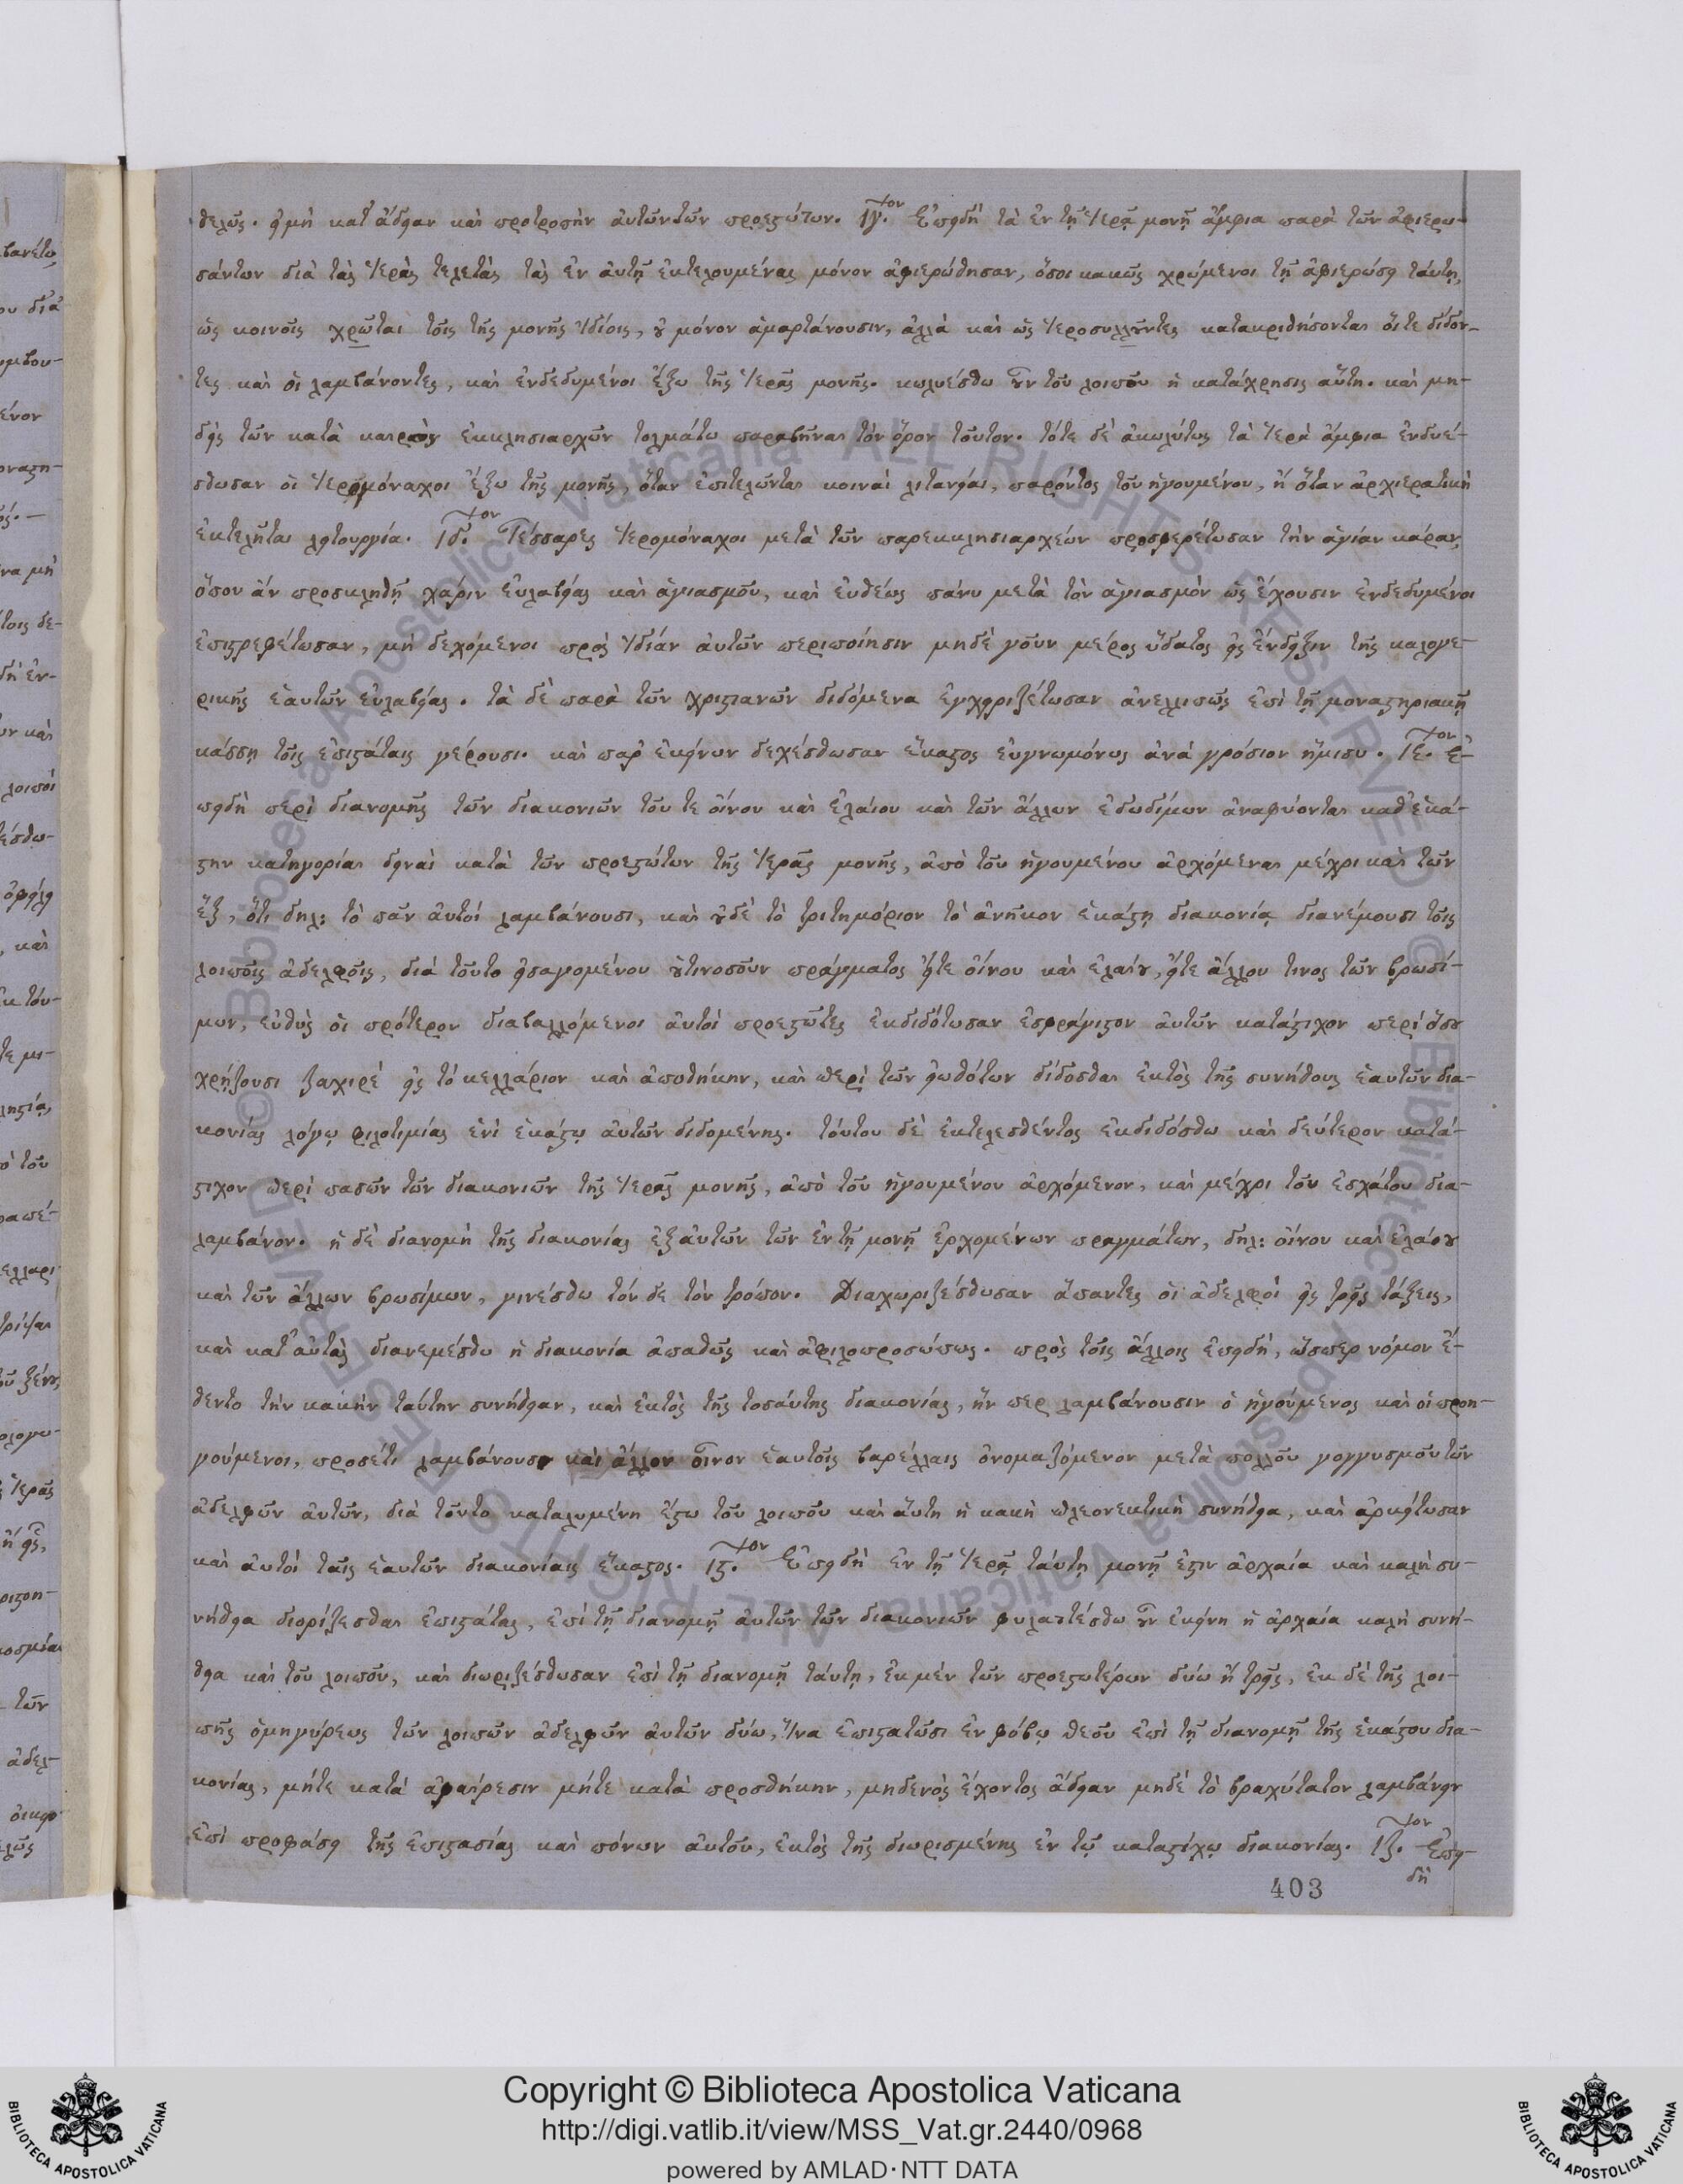 τελῶς. εἰμὴ κατ' ἄδειαν καὶ προτροπὴν αὐτῶν τῶν προεστώτων. ΙΓ.τον Ἐπειδὴ τὰ ἐν τῇ Ἱερᾷ μονῇ ἄμφια παρὰ τῶν ἀφιερω-
σάντων διὰ τὰς Ἱερὰς τελετὰς τὰς ἐν αὐτῇ ἐκτελουμένας μόνον ἀφιερώθησαν, ὅσοι κακῶς χρώμενοι τῇ ἀφιερώσει ταύτῃ,
ὡς κοινοῖς χρῶται τοῖς τῆς μονῆς Ἰδίοις, οὐ μόνον ἁμαρτάνουσιν, ἀλλὰ καὶ ὡς Ἱεροσυλλοῦντες κατακριθήσονται οἵτε δίδον-
τες καὶ οἱ λαμβάνοντες, καὶ ἐνδεδυμένοι ἔξω τῆς Ἱερᾶς μονῆς. κωλυέσθω οὖν τοῦ λοιποῦ ἡ κατάχρησις αὕτη. καὶ μη-
δεὶς τῶν κατὰ καιρὸν ἐκκλησιαρχῶν τολμάτω παραβῆναι τὸν ὅρον τοῦτον. τότε δὲ ἀκωλύτως τὰ Ἱερὰ ἄμφια ἐνδυέ-
σθωσαν οἱ Ἱερομόναχοι ἔξω τῆς μονῆς, ὅταν ἐπιτελῶνται κοιναὶ λιτανεῖαι, παρόντος τοῦ ἡγουμένου, ἢ ὅταν ἀρχιερατικὴ
ἐκτελῆται λειτουργία. ΙΔ.τον Τέσσαρες Ἱερομόναχοι μετὰ τῶν παρεκκλησιαρχέων προσφερέτωσαν τὴν ἁγίαν κάραν,
ὅπου ἂν προσκληθῇ χάριν εὐλαβείας καὶ ἁγιασμοῦ, καὶ εὐθέως πάνυ μετὰ τὸν ἁγιασμὸν ὡς ἔχουσιν ἐνδεδυμένοι
ἐπιστρεφέτωσαν, μὴ δεχόμενοι πρὸς Ἰδίαν αὐτῶν περιποίησιν μηδὲ γοῦν μέρος ὕδατος εἰς ἔνδειξιν τῆς καλογε-
ρικῆς ἑαυτῶν εὐλαβείας. τὰ δὲ παρὰ τῶν χριστιανῶν διδόμενα ἐγχειριζέτωσαν ἀνελλιπῶς ἐπὶ τῇ μοναστηριακῇ
κάσσῃ τοῖς ἐπιστάταις γέρουσι. καὶ παρ' ἐκείνων δεχέσθωσαν ἕκαστος εὐγνωμόνως ἀνά γρόσιον ἥμισυ. ΙΕ.τον Ἐ-
πειδὴ περὶ διανομῆς τῶν διακονιῶν τοῦ τε οἴνου καὶ ἐλαίου καὶ τῶν ἄλλων ἐδωδίμων ἀναφύονται καθ' ἑκά-
στην κατηγορίαι δειναὶ κατὰ τῶν προεστώτων τῆς Ἱερᾶς μονῆς, ἀπὸ τοῦ ἡγουμένου ἀρχόμεναι μέχρι καὶ τῶν
ἕξ, ὅτι δηλ: τὸ πᾶν αὐτοὶ λαμβάνουσι, καὶ οὐδὲ τὸ τριτημόριον τὸ ἀνῆκον ἑκάστῃ διακονίᾳ διανέμουσι τοῖς
λοιποῖς ἀδελφοῖς, διὰ τοῦτο εἰσαγομένου οὑτινοσοῦν πράγματος εἴτε οἴνου καὶ ἐλαίου, εἴτε ἄλλου τινος τῶν βρωσί-
μων, εὐθὺς οἱ πρότερον διαβαλλόμενοι αὐτοὶ προεστῶτες ἐκδιδότωσαν ἐσφράγιστον αὐτῶν κατάστιχον περὶ ὅσου
χρῄζουσι ζαχιρέ εἰς τὸ κελλάριον καὶ ἀποθήκην, καὶ περὶ τῶν εἰωθότων δίδοσθαι ἐκτὸς τῆς συνήθους ἑαυτῶν δια-
κονίας λόγῳ φιλοτιμίας ἑνὶ ἑκάστῳ αὐτῶν διδομένης. τούτου δὲ ἐκτελεσθέντος ἐκδιδόσθω καὶ δεύτερον κατά-
στιχον περὶ πασῶν τῶν διακονιῶν τῆς Ἱερᾶς μονῆς, ἀπὸ τοῦ ἡγουμένου ἀρχόμενον, καὶ μέχρι τοῦ ἐσχάτου δια-
λαμβάνον. ἡ δὲ διανομὴ τῆς διακονίας ἐξ αὐτῶν τῶν ἐν τῇ μονῇ ἐρχομένων πραγμάτων, δηλ: οἴνου καὶ ἐλαίου
καὶ τῶν ἄλλων βρωσίμων, γινέσθω τόν δε τὸν τρόπον. Διαχωριζέσθωσαν ἅπαντες οἱ ἀδελφοὶ εἰς τρεῖς τάξεις,
καὶ κατ' αὐτὰς διανεμέσθω ἡ διακονία ἀπαθῶς καὶ ἀφιλοπροσώπως. πρὸς τοῖς ἄλλοις ἐπειδὴ, ὥσπερ νόμον ἔ-
θεντο τὴν κακὴν ταύτην συνήθειαν, καὶ ἐκτὸς τῆς τοσαύτης διακονίας, ἥν περ λαμβάνουσιν ὁ ἡγούμενος καὶ οἱ προη-
γούμενοι, προσέτι λαμβάνουσι καὶ ἄλλον οἶνον ἑαυτοῖς βαρέλλαις ὀνομαζόμενον μετὰ πολλοῦ γογγυσμοῦ τῶν
ἀδελφῶν αὐτῶν, διὰ τοῦτο καταλυμένη ἔστω τοῦ λοιποῦ καὶ αὕτη ἡ κακὴ πλεονεκτικὴ συνήθεια, καὶ ἀρκείτωσαν
καὶ αὐτοὶ ταῖς ἑαυτῶν διακονίαις ἕκαστος. Ιϛ.τον Ἐπειδὴ ἐν τῇ Ἱερᾷ ταύτῃ μονῇ ἐστιν ἀρχαία καὶ καλὴ συ-
νήθεια διορίζεσθαι ἐπιστάτας, ἐπὶ τῇ διανομῇ αὐτῶν τῶν διακονιῶν φυλαττέσθω οὖν ἐκείνη ἡ ἀρχαία καλὴ συνή-
θεια καὶ τοῦ λοιποῦ, καὶ διωριζέσθωσαν ἐπὶ τῇ διανομῇ ταύτῃ, ἐκ μὲν τῶν προεστωτέρων δύω ἢ τρεῖς, ἐκ δὲ τῆς λοι-
πῆς ὁμηγύρεως τῶν λοιπῶν ἀδελφῶν αὐτῶν δύω, Ἵνα ἐπιστατῶσι ἐν φόβῳ θεοῦ ἐπὶ τῇ διανομῇ τῆς ἑκάστου δια-
κονίας, μήτε κατὰ ἀφαίρεσιν μήτε κατὰ προσθήκην, μηδενὸς ἔχοντος ἄδειαν μηδὲ τὸ βραχύτατον λαμβάνειν
ἐπὶ προφάσει τῆς ἐπιστασίας καὶ πόνων αὐτοῦ, ἐκτὸς τῆς διωρισμένης ἐν τῷ καταστίχῳ διακονίας. ΙΖ.τον Ἐπει-
δὴ
403
Copyright © Biblioteca Apostolica Vaticana
http://digi.vatlib.it/view/MSS_Vat.gr.2440/0968
powered by AMLAD·NTT DATA